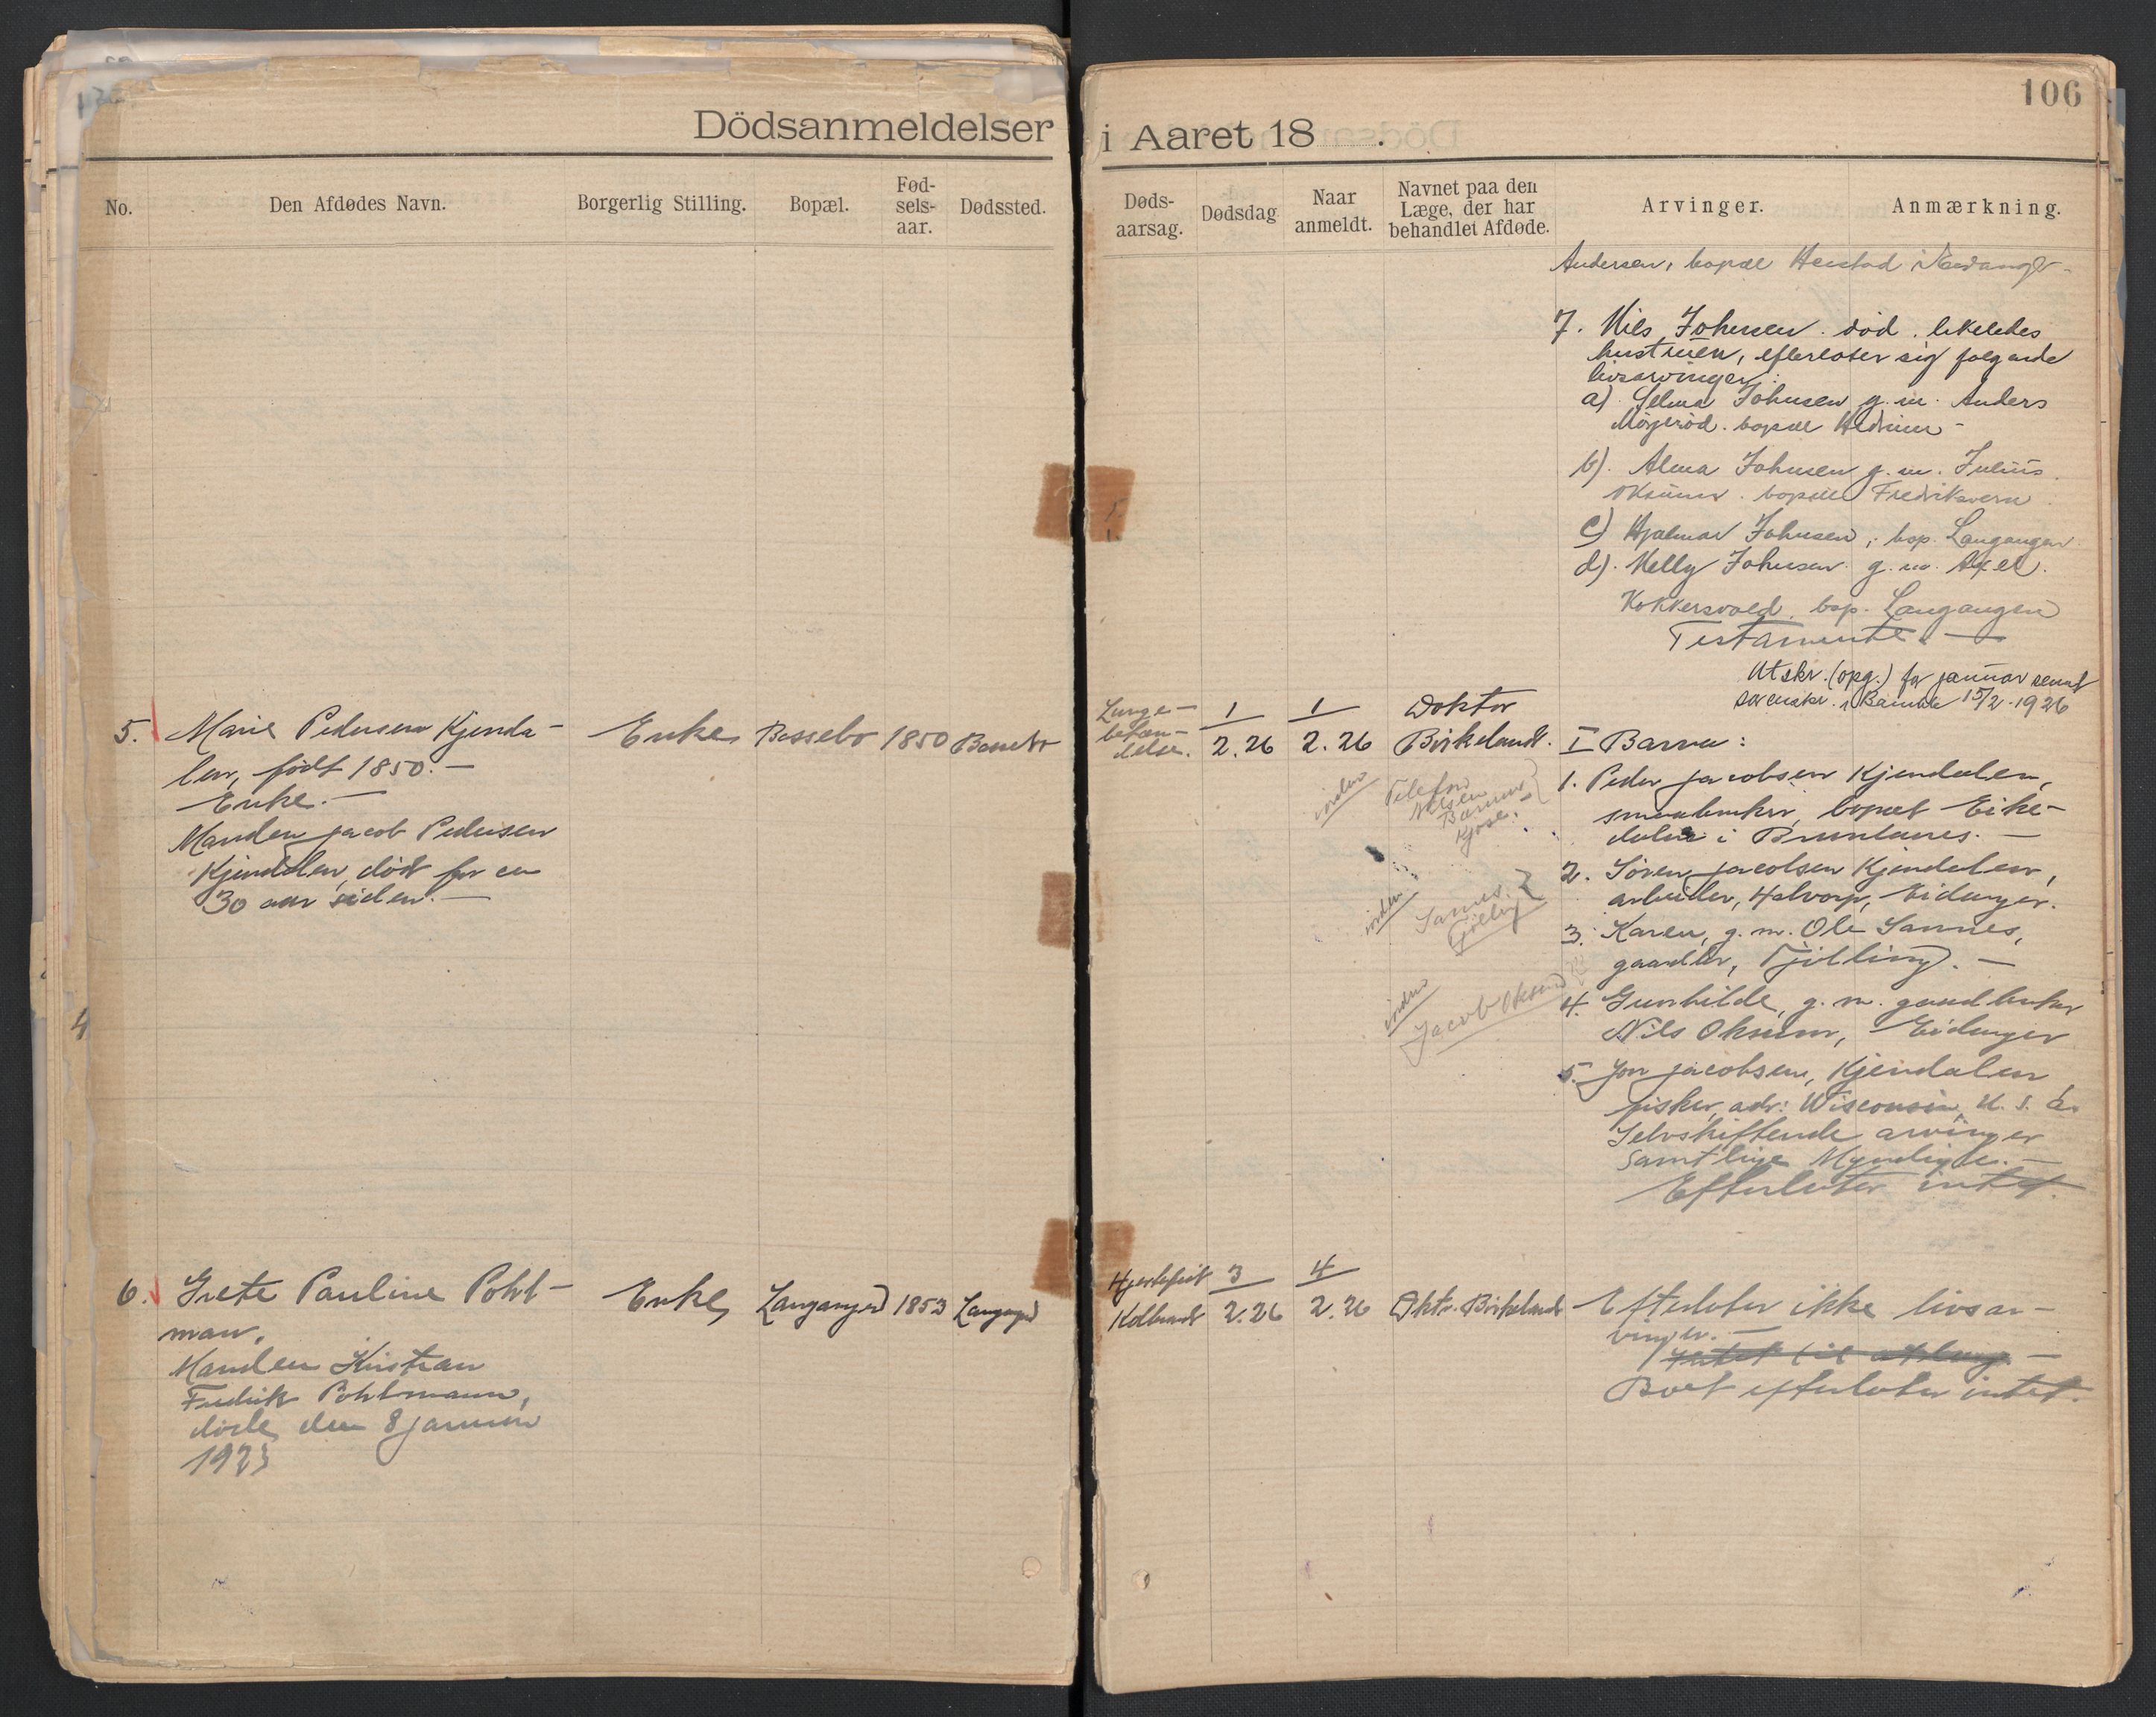 106
Dödsanmeldelser i Aaret 18 .
No.
Den Afdødes Navn.
Borgerlig Stilling.
Bopæl.
Fød-
sels-
aar.
Dødssted.
Døds-
aarsag.
Dødsdag
Naar
anmeldt.
Navnet paa den
Læge, der har
behandlet Afdøde.
Arvinger.
Anmærkning.
Andersen, bopæl
7. Nils Johnsen. död. likeledes
hustruen, efterlater sig følgende
livsarvinger:
a). Selma Johnsen g. m. Anders
bopæl Hedrum -
b). Alma Johnsen g. m. Julius
Oksum. bopæl Fredriksvern.
c) Hjalmar Johnsen, bop. Langangen.
d). Nelly Johnsen g. m. Axel.
Kokkersvold. bop. Langangen
Testamente. —
Utskr. (opg.) for januar sendt
sorenskr. i Bamble 15/2-1926
5. Marie Pedersen Kjenda-
len, født 1850. —
Enke. —
Manden Jacob Pedersen
Kjendalen, død for ca
30 aar siden. —
Enke
Bassebo
1850
Bassebo
Lunge-
betæn-
delse.
1
2.26
1
2.26
Doktor
Birkelandt.
Telefon
Nilsen
Kjose.
Sannes.
Tjölling
Jacob Oksum
I Barna:
1. Peder Jacobsen Kjendalen,
smaabruker, bopæl Eike-
dalen i Brunlanes. —
2. Sören Jacobsen Kjendalen,
arbeider, Halvarp, Eidanger.
3. Karen, g. m. Ole Sannes,
gaardbr, Tjölling. —
4. Gunhilde, g. m. gaardbruker
Nils Oksum, Eidanger
5. Jon Jacobsen, Kjendalen
fisker, adr: Wisconsin, U. S. A.
Selvskiftende arvinger
Samtlige Myndige. —
Efterlater intet.
6. Grete Pauline Poht-
man,
Manden Kristian
Fredrik Pohtmann,
døde den 8 januar
1923
Enke
Langangen
1853
Langangen
Hjertefeil
Koldbrand
3
2.26
4
2.26
Dktr. Birkeland
Efterlater ikke livsar-
vinger. —
Intet til —
Boet efterlater intet.